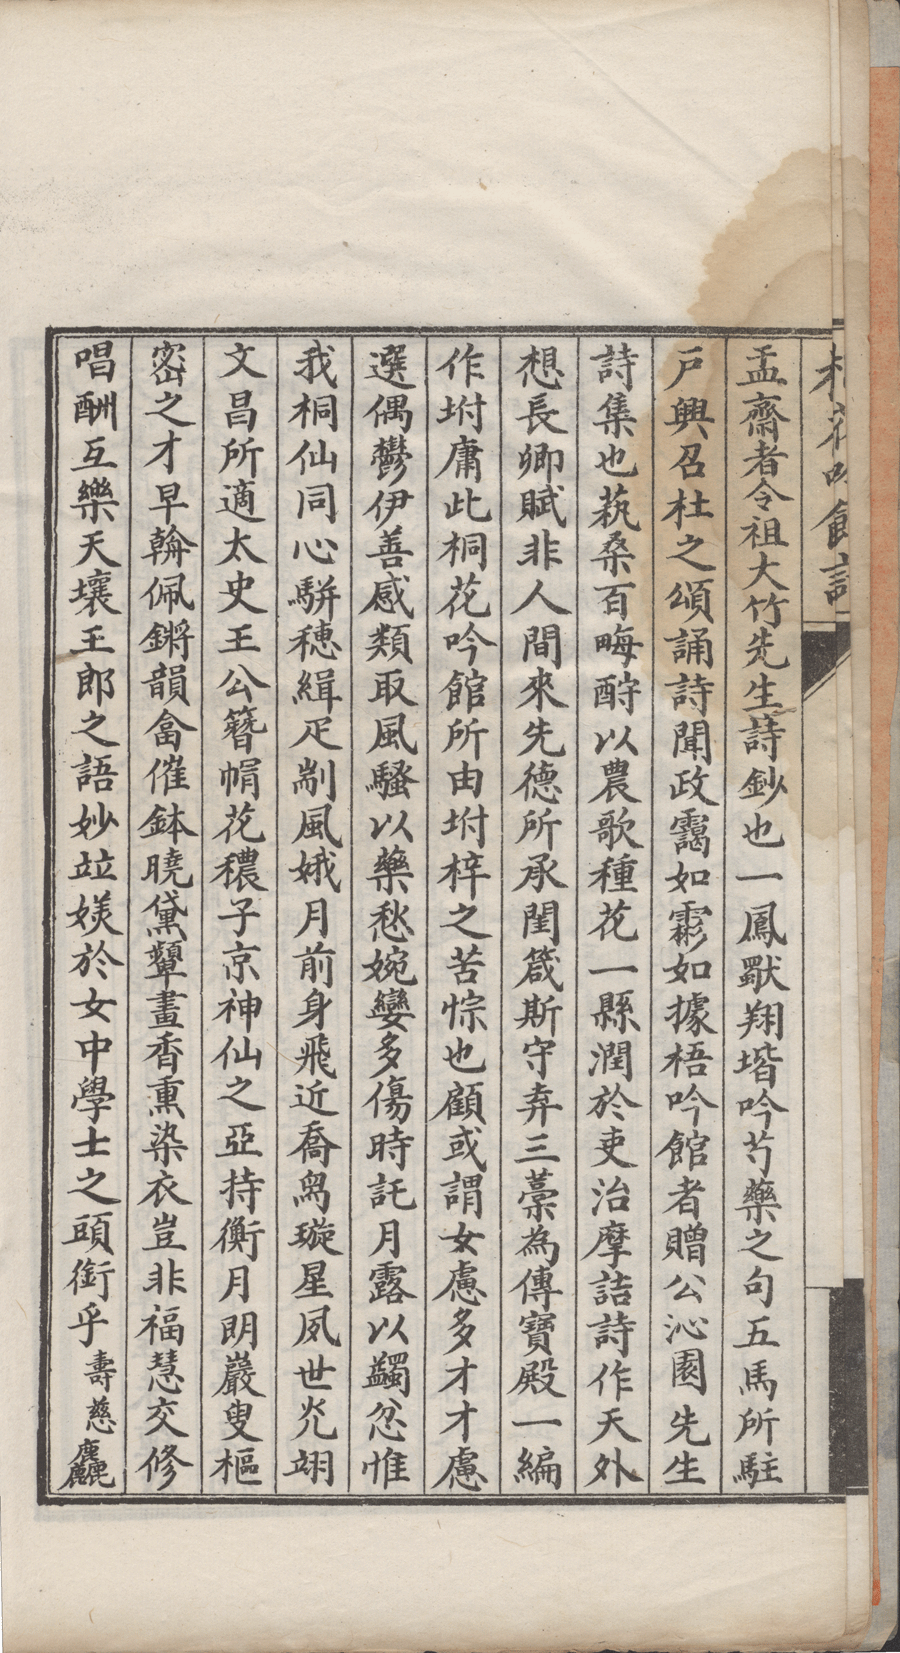 桐花吟館詩
盂齋者令祖大竹先生詩鈔也一鳳歇翔堦吟芍藥之句五馬所駐
戸興召杜之頌誦詩聞政靄如霦如據梧吟館者贈公沁園先生
詩集也蓺桑百畮酧以農歌種花一縣潤於吏治摩詰詩作天外
想長卿賦非人間來先德所承閨箴斯守弆三藁為傳寶殿一編
作坿庸此桐花吟館所由坿梓之苦悰也顧或謂女慮多才才慮
選偶鬱伊善感類取風騷以藥愁婉孌多傷時託月露以蠲忿惟
我桐仙同心駢穗緝疋剬風娥月前身飛近喬舄璇星夙世灮翊
文昌所適太史王公簪帽花穠子京神仙之亞持衡月朙巖叟樞
密之才早榦佩鏘韻畣催鉢曉黛顰畫香熏染衣豈非福慧交修
唱酬互樂天壤王郎之語妙竝媄於女中學士之頭銜乎
壽慈麤